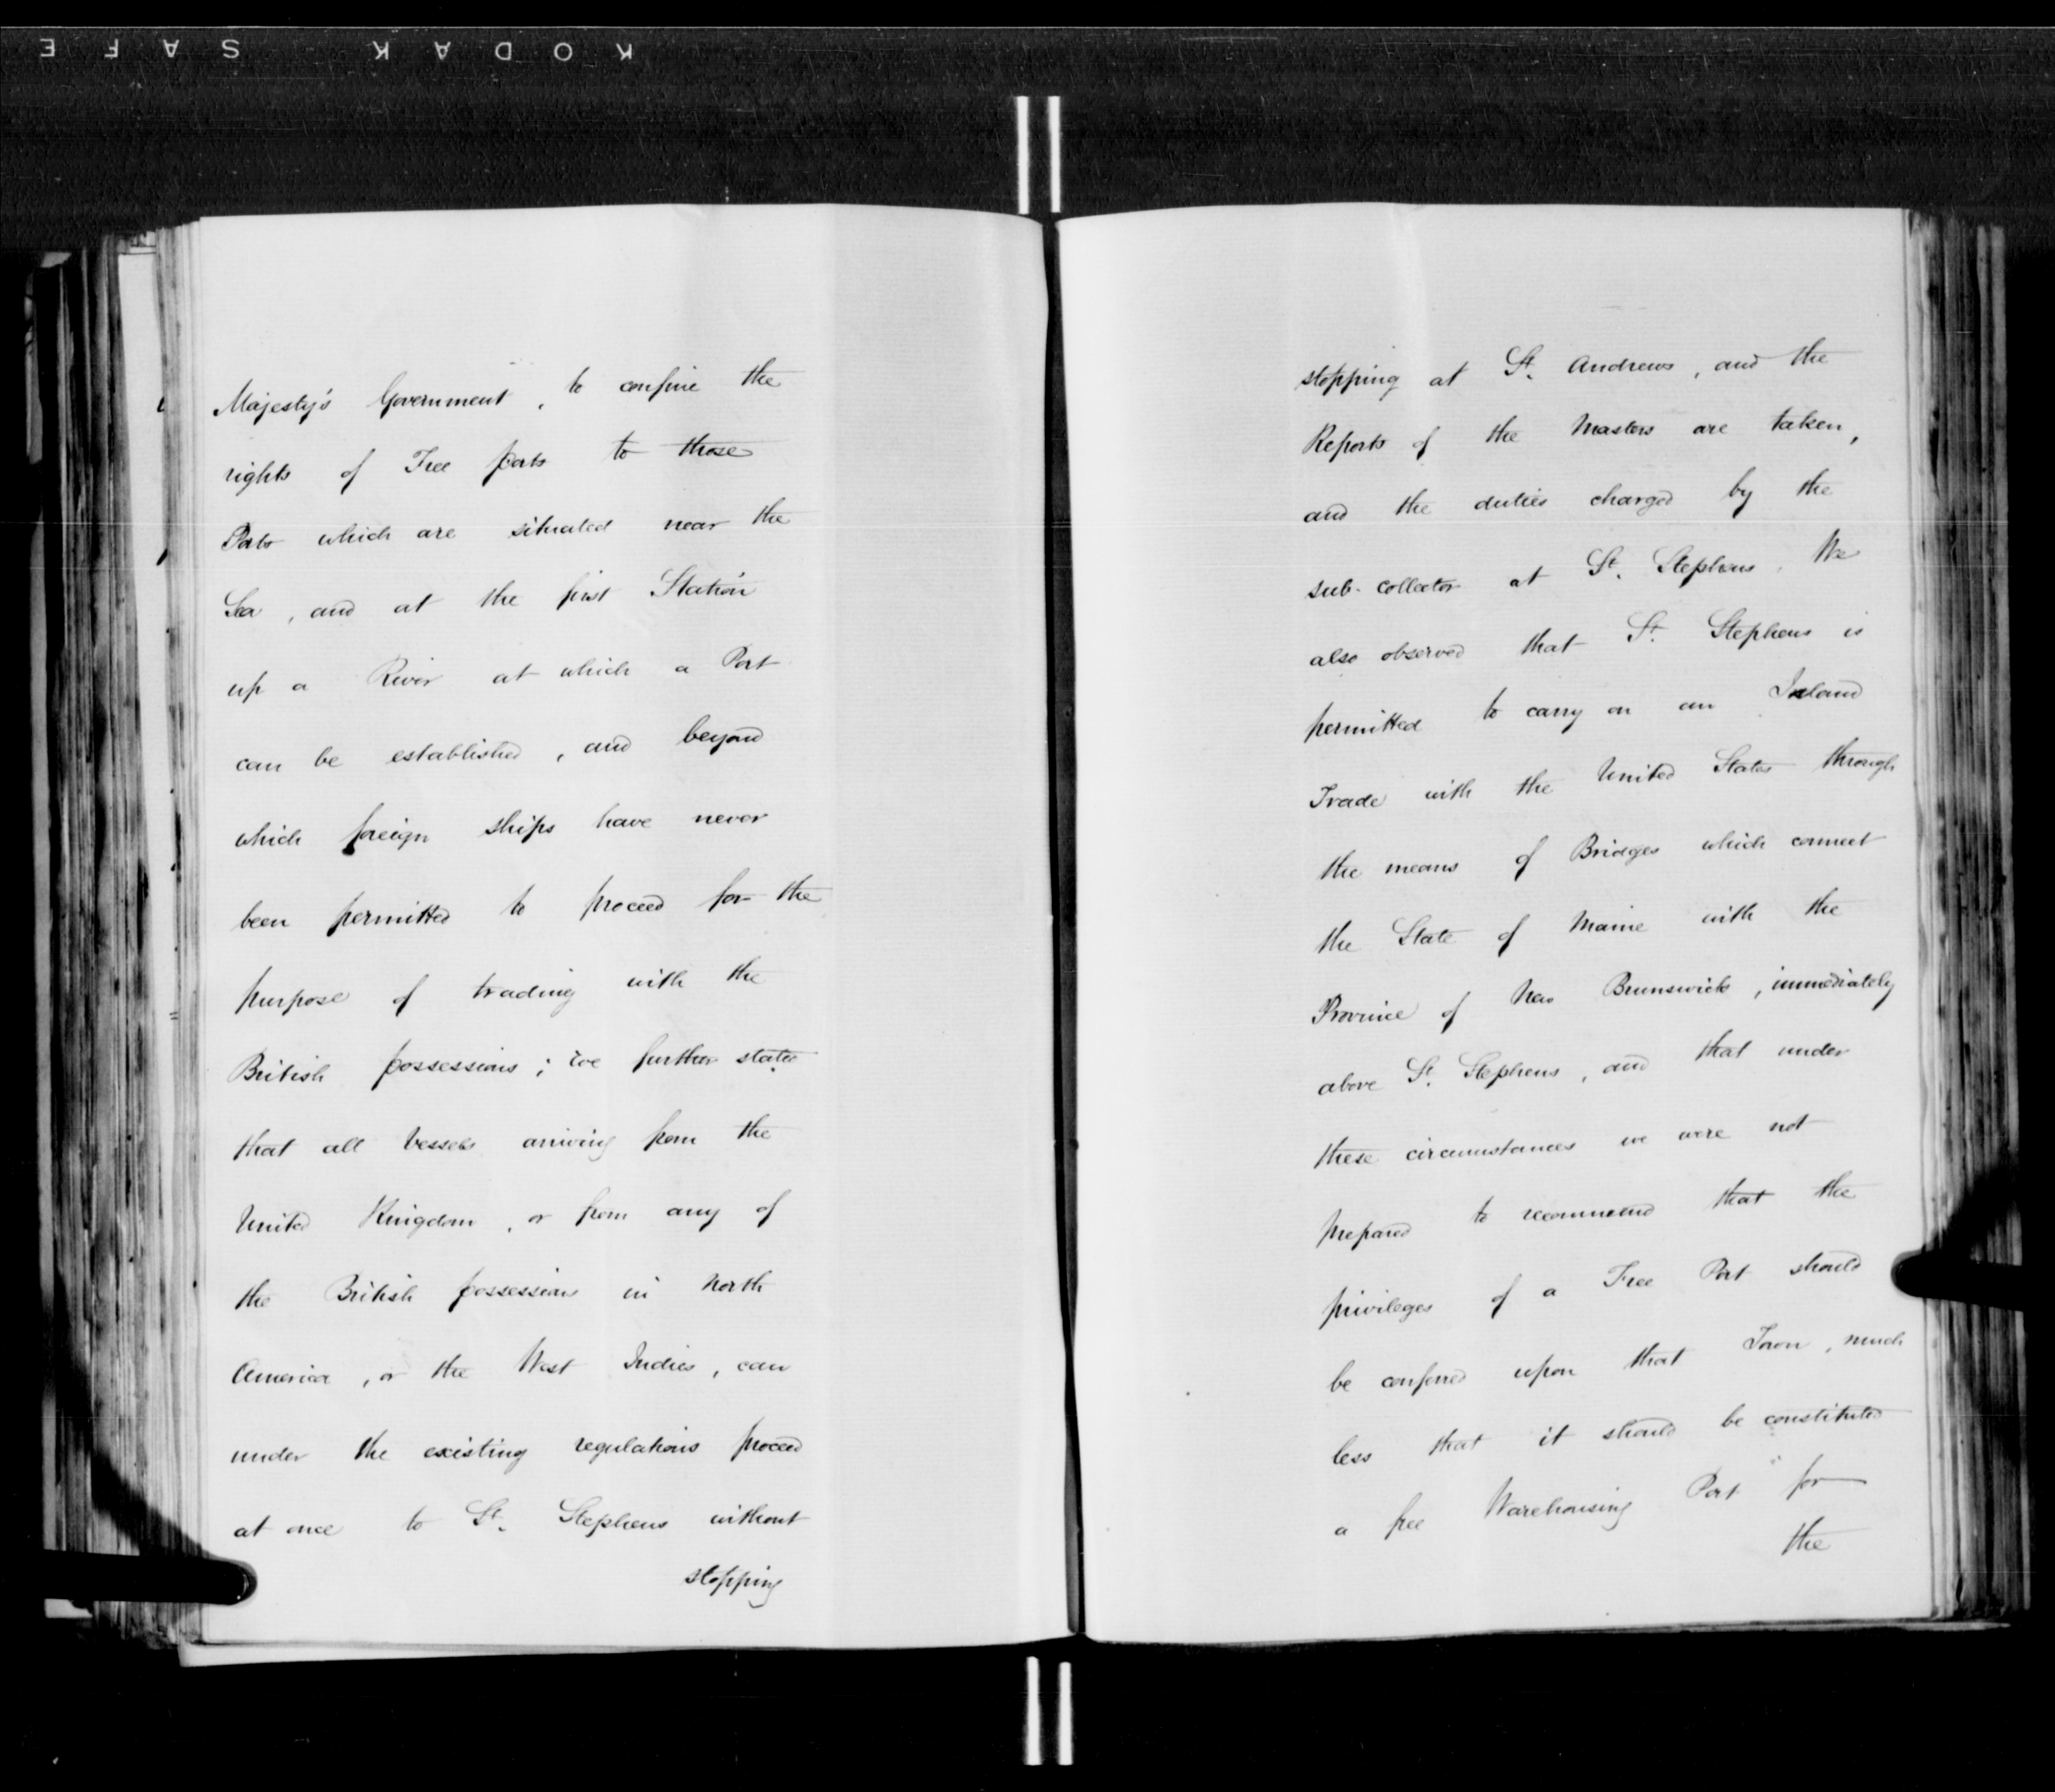 KODAK SAFE
Majesty's Government, to confine the
rights of Free ports to those
Ports which are situated near the
Sea, and at the first Station
up a River at which a Port
can be established, and beyond
which foreign ships have never
been permitted to proceed for the
purpose of trading with the
British possessions; we further state
that all Vessels arriving from the
United Kingdom, or from any of
the British possessions in North
America, or the West Indies, can
under the existing regulations proceed
at once to St. Stephens without
stopping
stopping at St. Andrews, and the
Reports of the Masters are taken,
and the duties charged by the
sub-collector at St. Stephens. We
also observed that St. Stephens is
permitted to carry on an Inland
Trade with the United States through
the means of Bridges which connect
the State of Maine with the
Province of New Brunswick, immediately
above St. Stephens, and that under
these circumstances we were not
prepared to recommend that the
privileges of a Free Port should
be conferred upon that Town, much
less that it should be constituted
a free Warehousing Port for
the